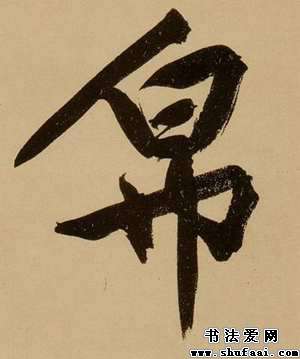 帛
书法爱网
www.shufaai.com